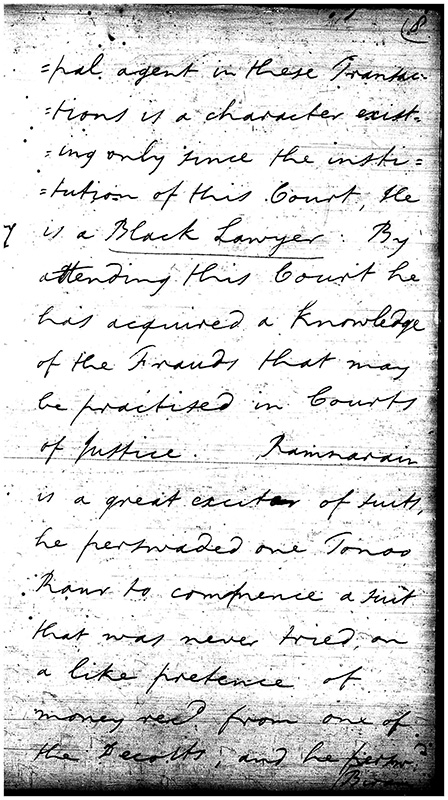 8
=pal agent in these Transac-
=tions is a character exist-
=ing only since the insti=
=tution of this Court, He
is a Black Lawyer. By
attending this Court he
has acquired a Knowledge
of the Frauds that may
be practised in Courts
of Justice. Ramnarain
is a great exciter of suits,
he perswaded one Tonoo
Raur to commence a suit
that was never tried, on
a like pretence of
money recd from one of
the Decoits, and he